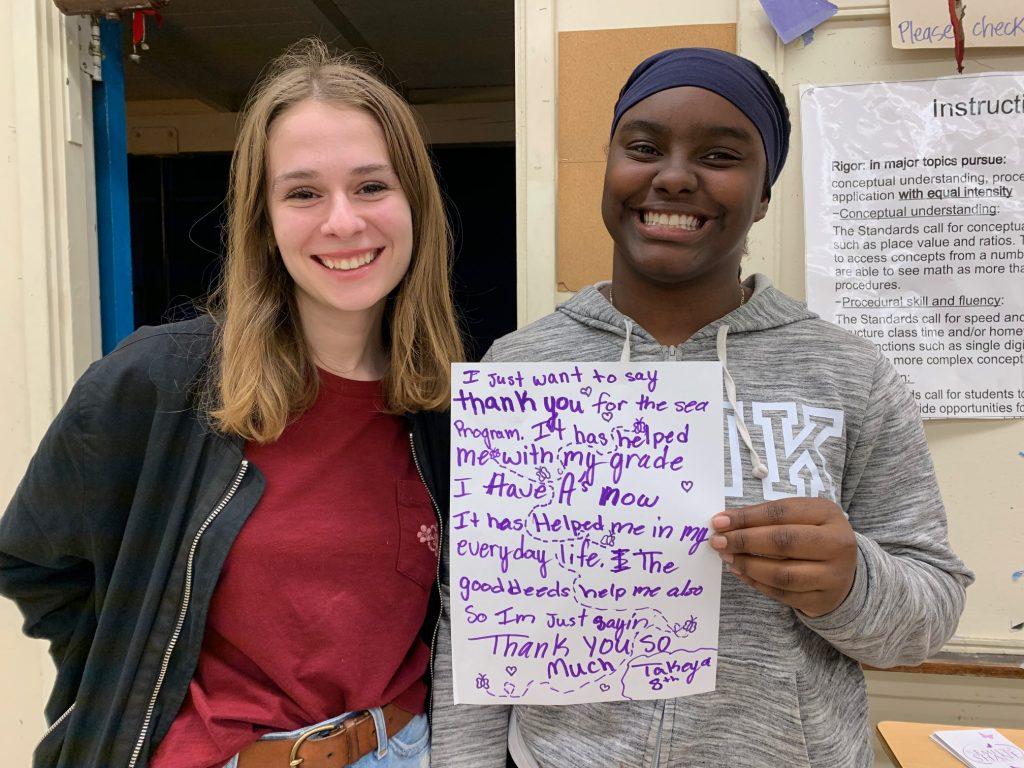 I Just want to say
thank you for the sea
Program. It has helped
me with my grade
I Have A's now
It has Helped me in my
everyday life. The
good deeds help me also
So Im Just sayin
Thank you so
much
Takeya
8th
UK
Please check
Instructi
Rigor: in major topics pursue:
conceptual understanding, proce
application with equal intensity
–Conceptual understanding:
The Standards call for conceptua
such as place value and ratios. T
to access concepts from a numb
are able to see math as more tha
procedures.
–Procedural skill and fluency:
The Standards call for speed and
ructure class time and/or home
nctions such as single digi
more complex concept
n:
call for students to
ide opportunities fo